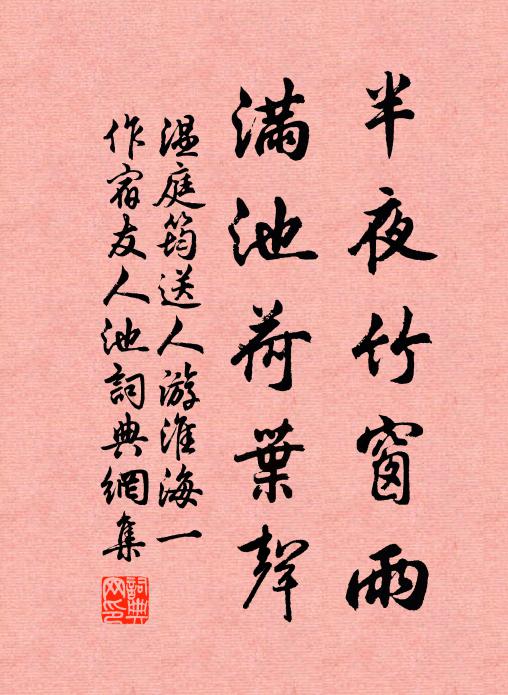 半夜竹窗雨
滿池荷葉聲
溫庭筠送人游淮海一
作宿友人池詞典網集
詞典網印